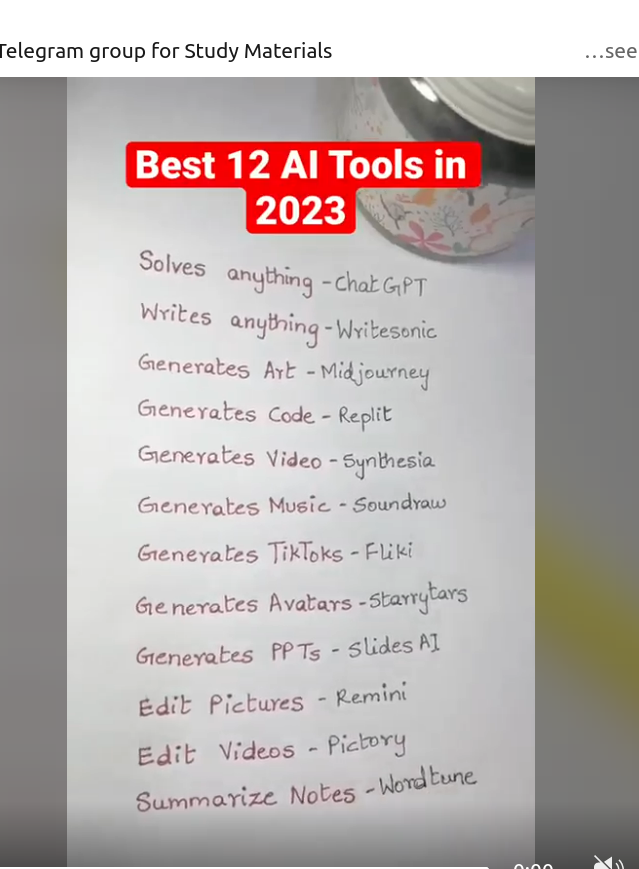 Telegram group for Study Materials …see
Best 12 AI Tools in
2023
Solves anything - Chat GPT
Writes anything - Writesonic
Generates Art - Midjourney
Generates Code - Replit
Generates Video - Synthesia
Generates Music - Soundraw
Generates TikToks - Fliki
Generates Avatars - Starrytars
Generates PPTs - Slides AI
Edit Pictures - Remini
Edit Videos - Pictory
Summarize Notes - Wordtune
0:00